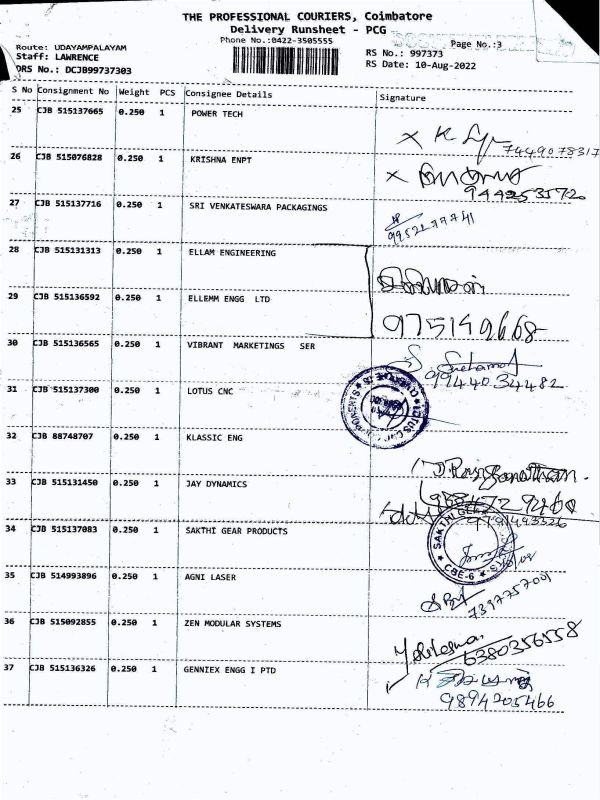 THE PROFESSIONAL COURIERS, Coimbatore
Delivery Runsheet - PCG
Phone No.:0422-3505555
Page No.:3
Route: UDAYAMPALAYAM
Staff: LAWRENCE
DRS No.: DCJB99737303
RS No.: 997373
RS Date: 10-Aug-2022
S No Consignment No Weight PCS Consignee Details Signature
25 CJB 515137665 0.250 1 POWER TECH
7449078317
26 CJB 515076828 0.250 1 KRISHNA ENPT
9442535720
27 CJB 515137716 0.250 1 SRI VENKATESWARA PACKAGINGS
28 CJB 515131313 0.250 1 ELLAM ENGINEERING
29 CJB 515136592 0.250 1 ELLEMM ENGG LTD
30 CJB 515136565 0.250 1 VIBRANT MARKETINGS SER
9944034482
31 CJB 515137300 0.250 1 LOTUS CNC
32 CJB 88748707 0.250 1 KLASSIC ENG
33 CJB 515131450 0.250 1 JAY DYNAMICS
34 CJB 515137083 0.250 1 SAKTHI GEAR PRODUCTS
SAKTHI GEAR
CBE-6
35 CJB 514993896 0.250 1 AGNI LASER
7397757001
36 CJB 515092855 0.250 1 ZEN MODULAR SYSTEMS
6380356558
37 CJB 515136326 0.250 1 GENNIEX ENGG I PTD
9894205466